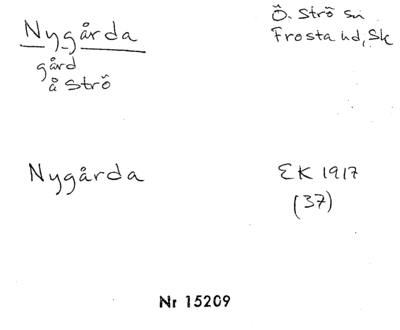 Nygårda
Ö. Strö sn
Frosta hd, Sk
gård
å Strö
Nygårda
EK 1917
(37)
Nr 15209